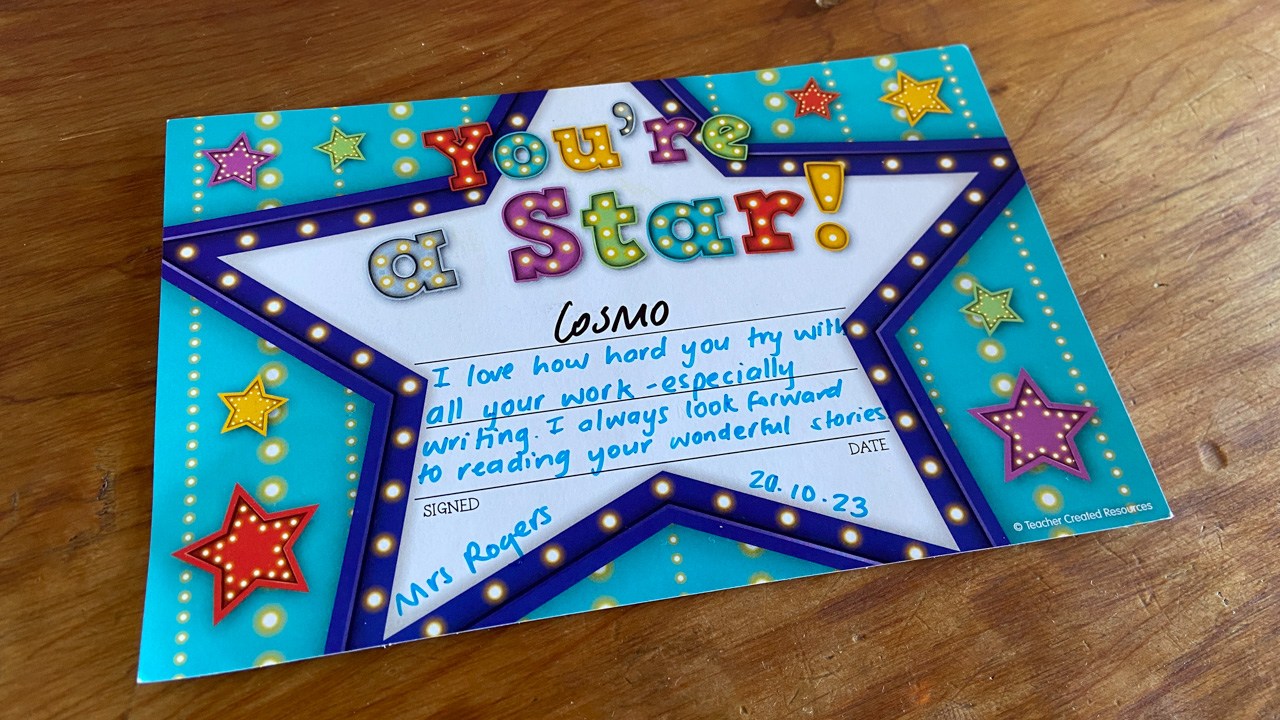 You're
a Star!
Cosmo
I love how hard you try with
all your work - especially
writing. I always look forward
to reading your wonderful stories
SIGNED
DATE
Mrs Rogers
20.10.23
© Teacher Created Resources